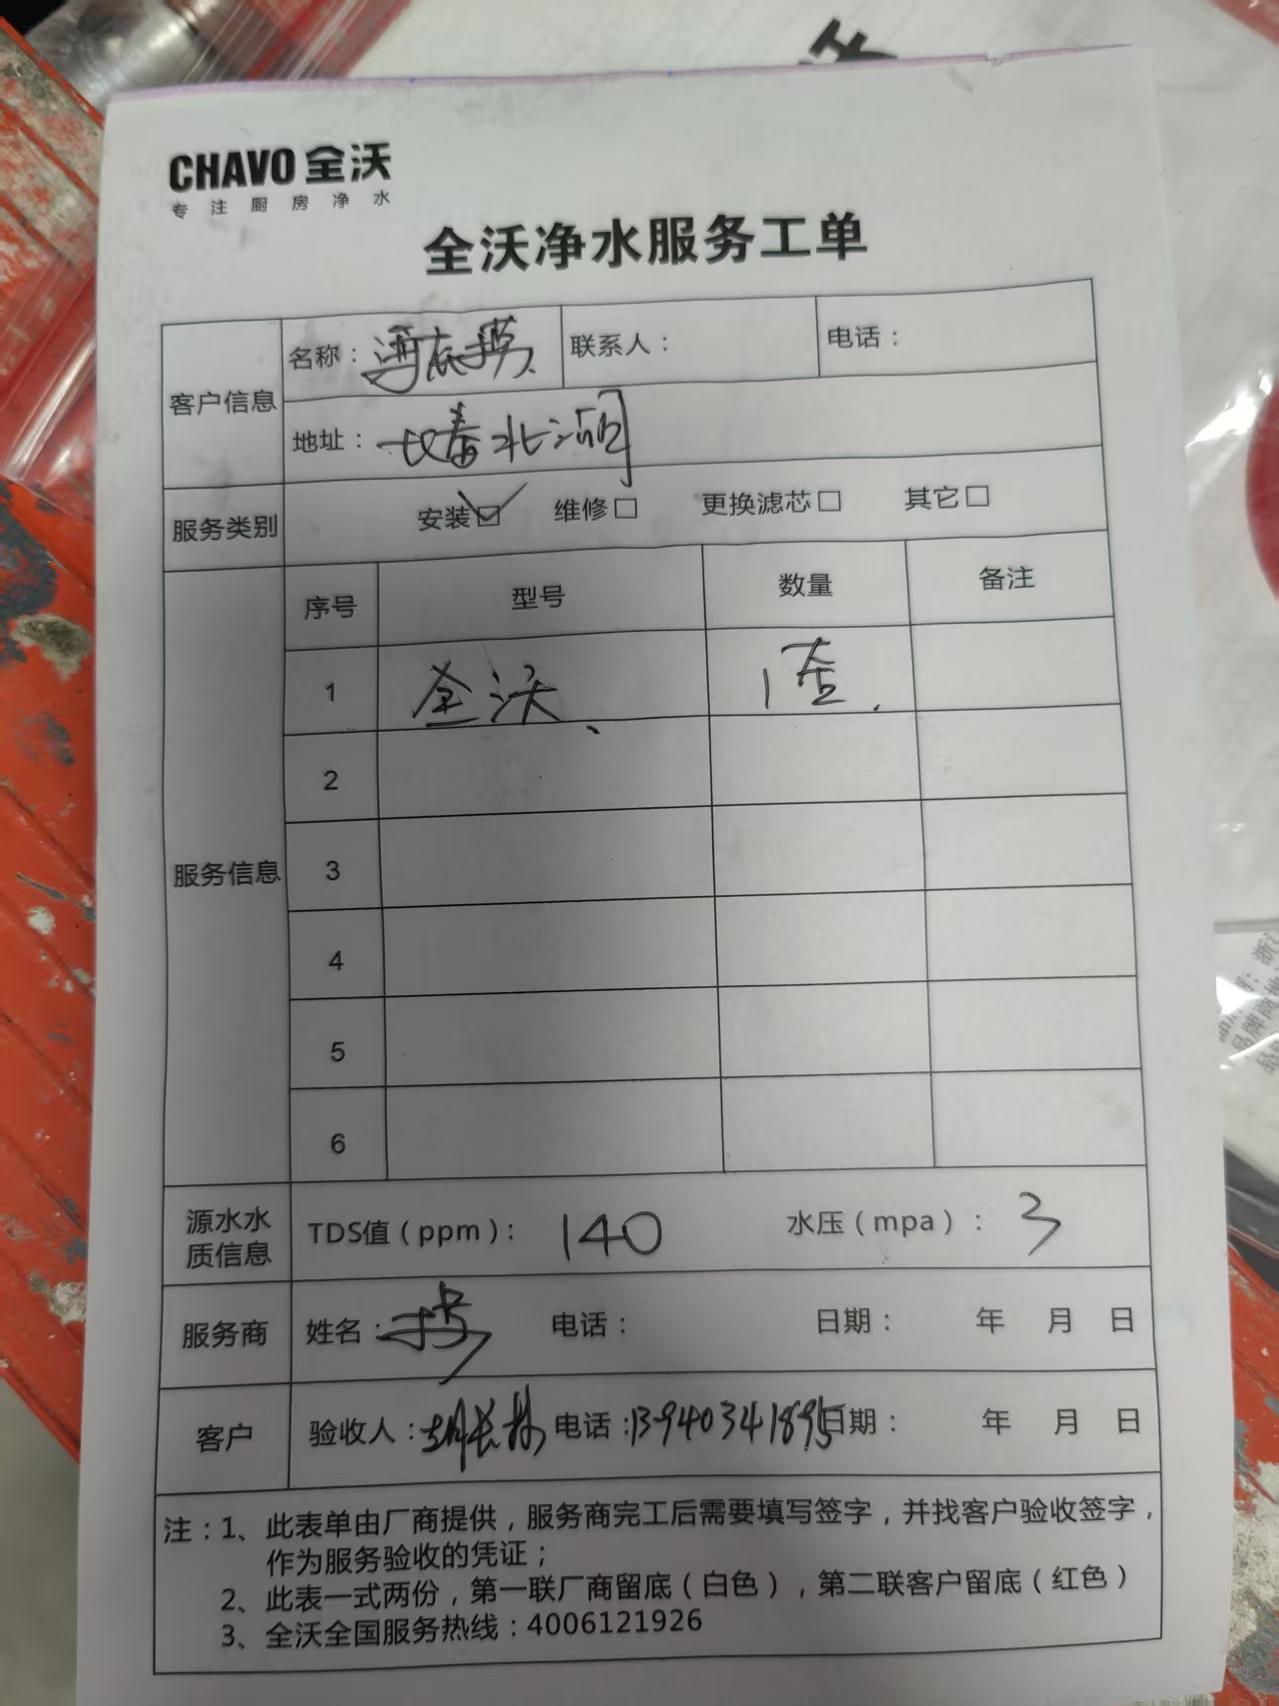 CHAVO 全沃
专注厨房净水
全沃净水服务工单
客户信息
名称：海底捞
联系人：
电话：
地址：北
服务类别
安装☑ 维修□ 更换滤芯□ 其它□
服务信息
序号 型号 数量 备注
1 全沃、 1套.
2
3
4
5
6
源水水质信息
TDS值（ppm）：140 水压（mpa）：3
服务商
姓名： 电话： 日期： 年 月 日
客户
验收人：胡长林 电话：13940341895 日期： 年 月 日
注：1、此表单由厂商提供，服务商完工后需要填写签字，并找客户验收签字，
作为服务验收的凭证；
2、此表一式两份，第一联厂商留底（白色），第二联客户留底（红色）
3、全沃全国服务热线：4006121926